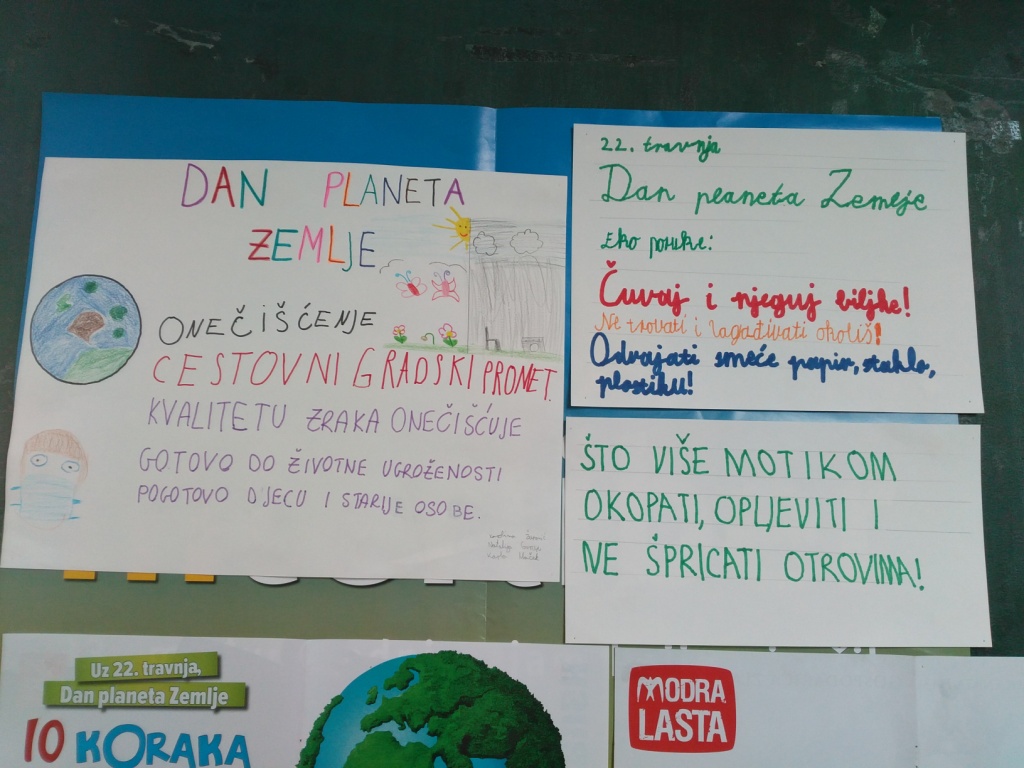 DAN PLANETA
ZEMLJE
ONEČIŠĆENJE
CESTOVNI GRADSKI PROMET.
KVALITETU ZRAKA ONEČIŠĆUJE
GOTOVO DO ŽIVOTNE UGROŽENOSTI
POGOTOVO DJECU I STARIJE OSOBE.
22. travnja
Dan planeta Zemlje
Eko poruke:
Čuvaj i njeguj biljke!
Ne trovati i zagađivati okoliš!
Odvajati smeće papir, staklo,
plastiku!
ŠTO VIŠE MOTIKOM
OKOPATI, OPLJEVITI I
NE ŠPRICATI OTROVIMA!
Uz 22. travnja,
Dan planeta Zemlje
10 KORAKA
MODRA
LASTA